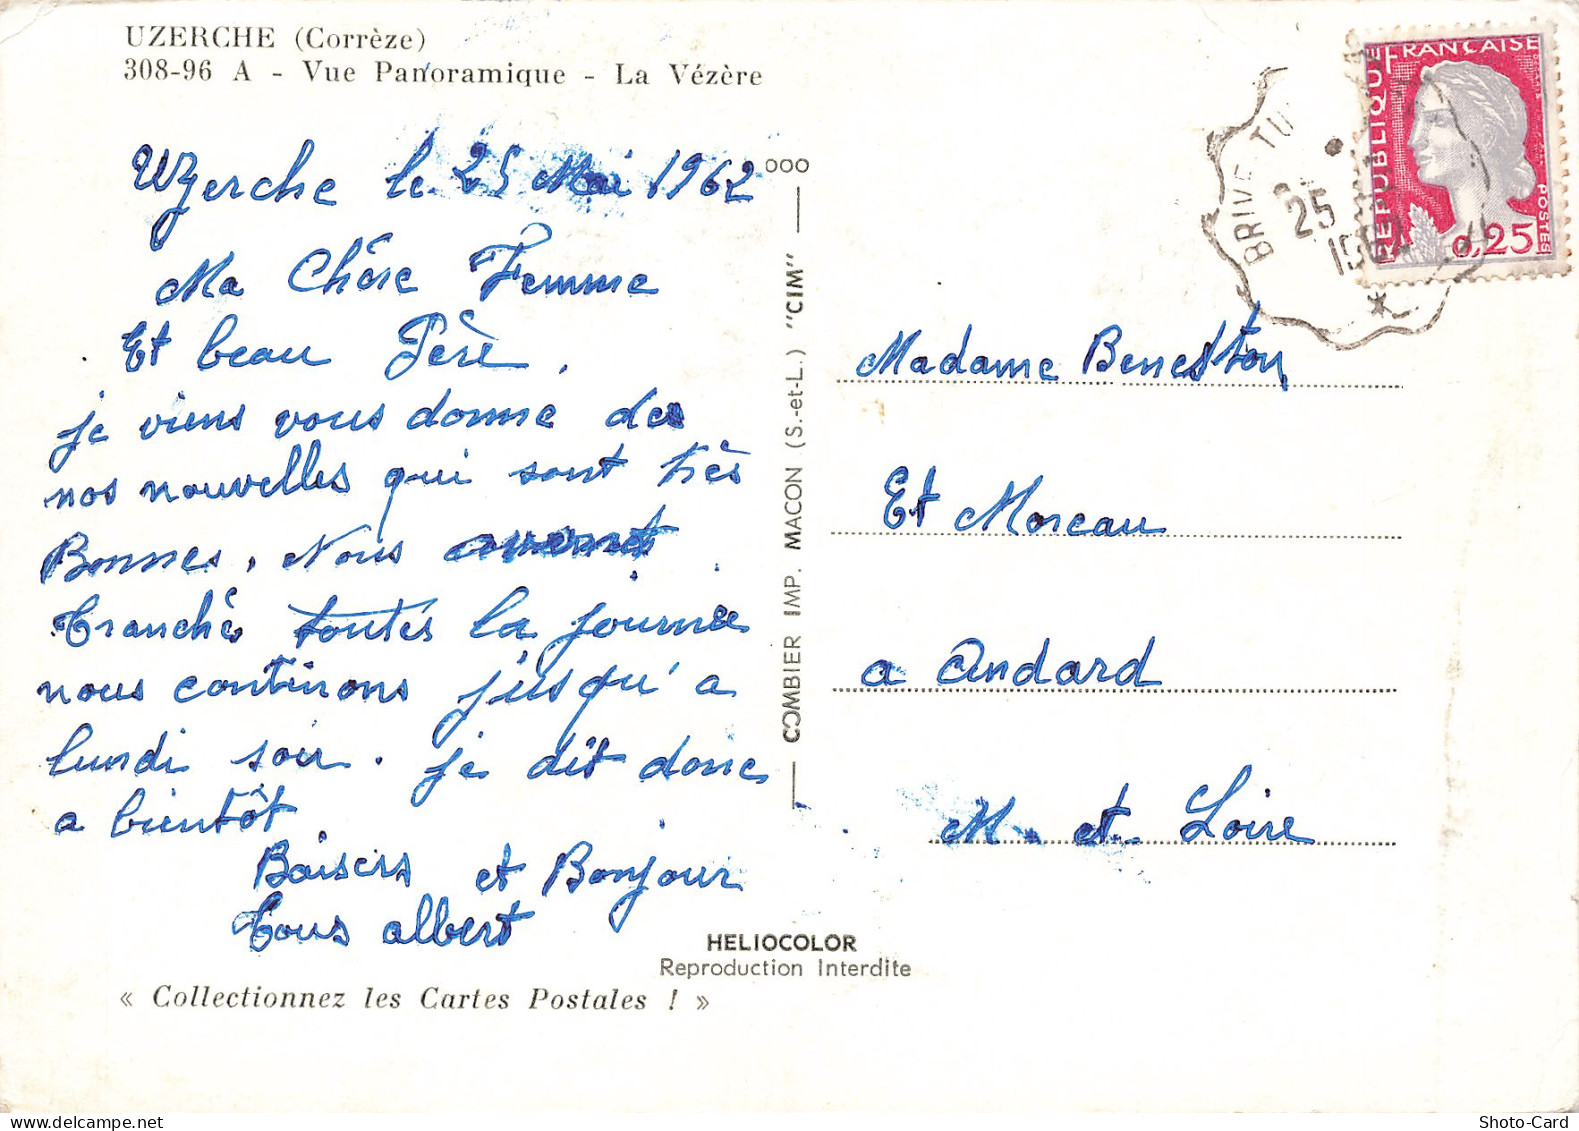 UZERCHE (Corrèze)
308-96 A - Vue Panoramique - La Vézère
Uzerche le 25 Mai 1962
Ma Chère Femme
Et beau Père,
je viens vous donne des
nos nouvelles qui sont très
Bonnes. Nous avont
Tranché toutes la journée
nous continons jusqu'a
lundi soir. je dit donc
a bientôt
Baisers et Bonjour
Tous albert
« Collectionnez les Cartes Postales ! »
HELIOCOLOR
Reproduction Interdite
COMBIER IMP. MACON (S.-et-L.) "CIM"
RÉPUBLIQUE FRANÇAISE
POSTES
0,25
BRIVE
25
1962
Madame Beneston
Et Moreau
a Andard
M. et Loire
Shoto-Card